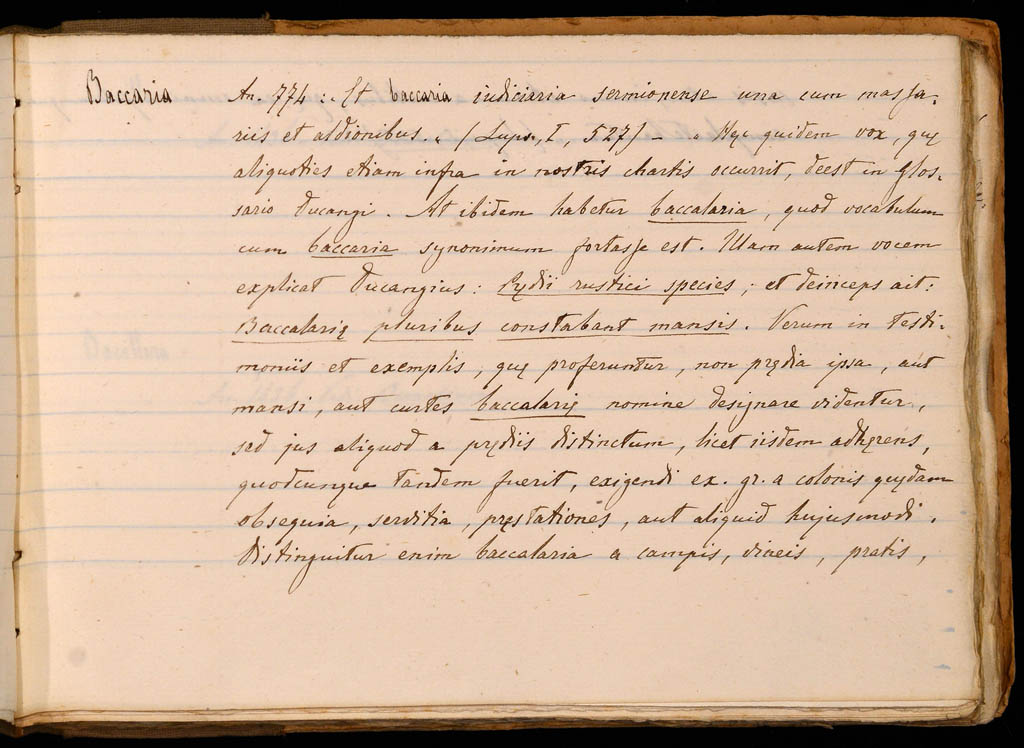 Baccaria
An. 774: „ Et baccaria iudiciaria sermionense una cum massa-
riis et aldionibus. „ (Lupo, I, 527) – „ Hęc quidem vox, quę
aliquoties etiam infra in nostris chartis occurrit, deest in Glos-
sario Ducangi. At ibidem habetur baccalaria, quod vocabulum
cum baccaria synonimum fortasse est. Illam autem vocem
explicat Ducangius: Prędii rustici species; et deinceps ait:
Baccalarię pluribus constabant mansis. Verum in testi-
moniis et exemplis, quę proferuntur, non prędia ipsa, aut
mansi, aut curtes baccalarię nomine designare videntur,
sed jus aliquod a prędiis distinctum, licet iisdem adhęrens,
quodcunque tandem fuerit, exigendi ex. gr. a colonis quędam
obsequia, servitia, pręstationes, aut aliquid hujusmodi.
Distinguitur enim baccalaria a campis, vineis, pratis,